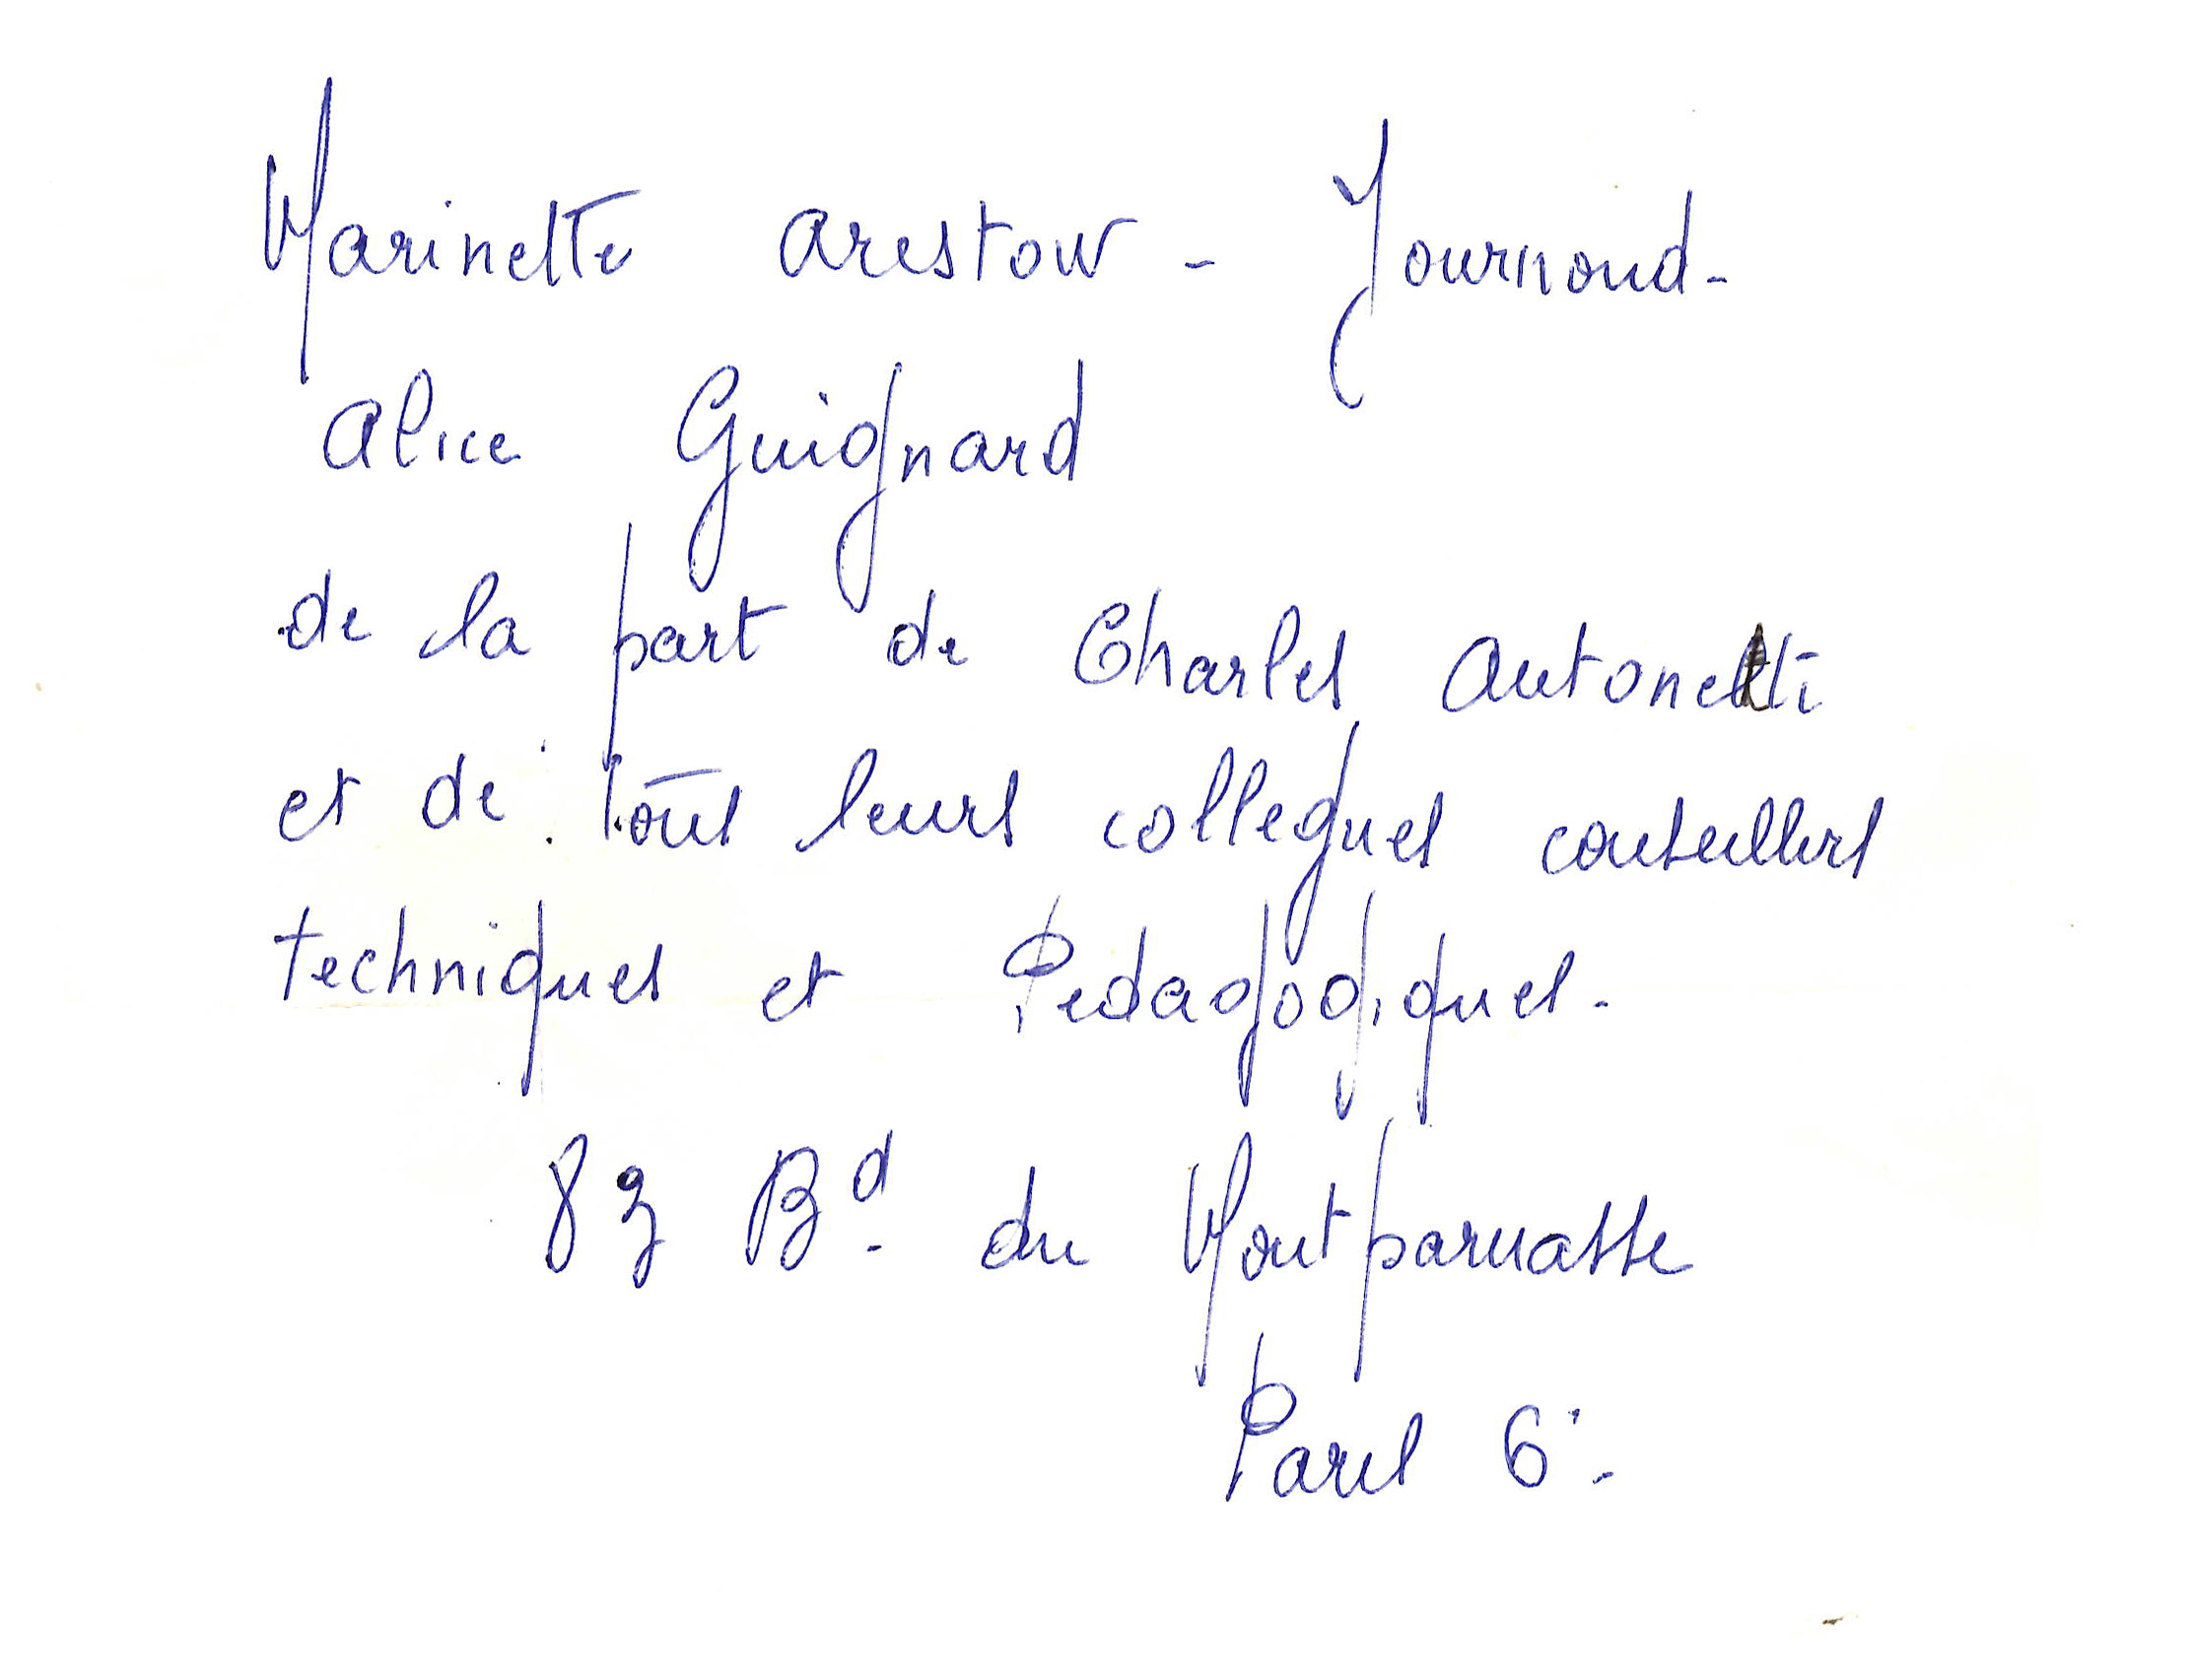 Marinette Arestow - Journoud -
Alice Guignard
de la part de Charles Antonetti
et de tous leurs collegues conseillers
techniques et Pedagogiques -
83 Bd. du Montparnasse
Paris 6e -